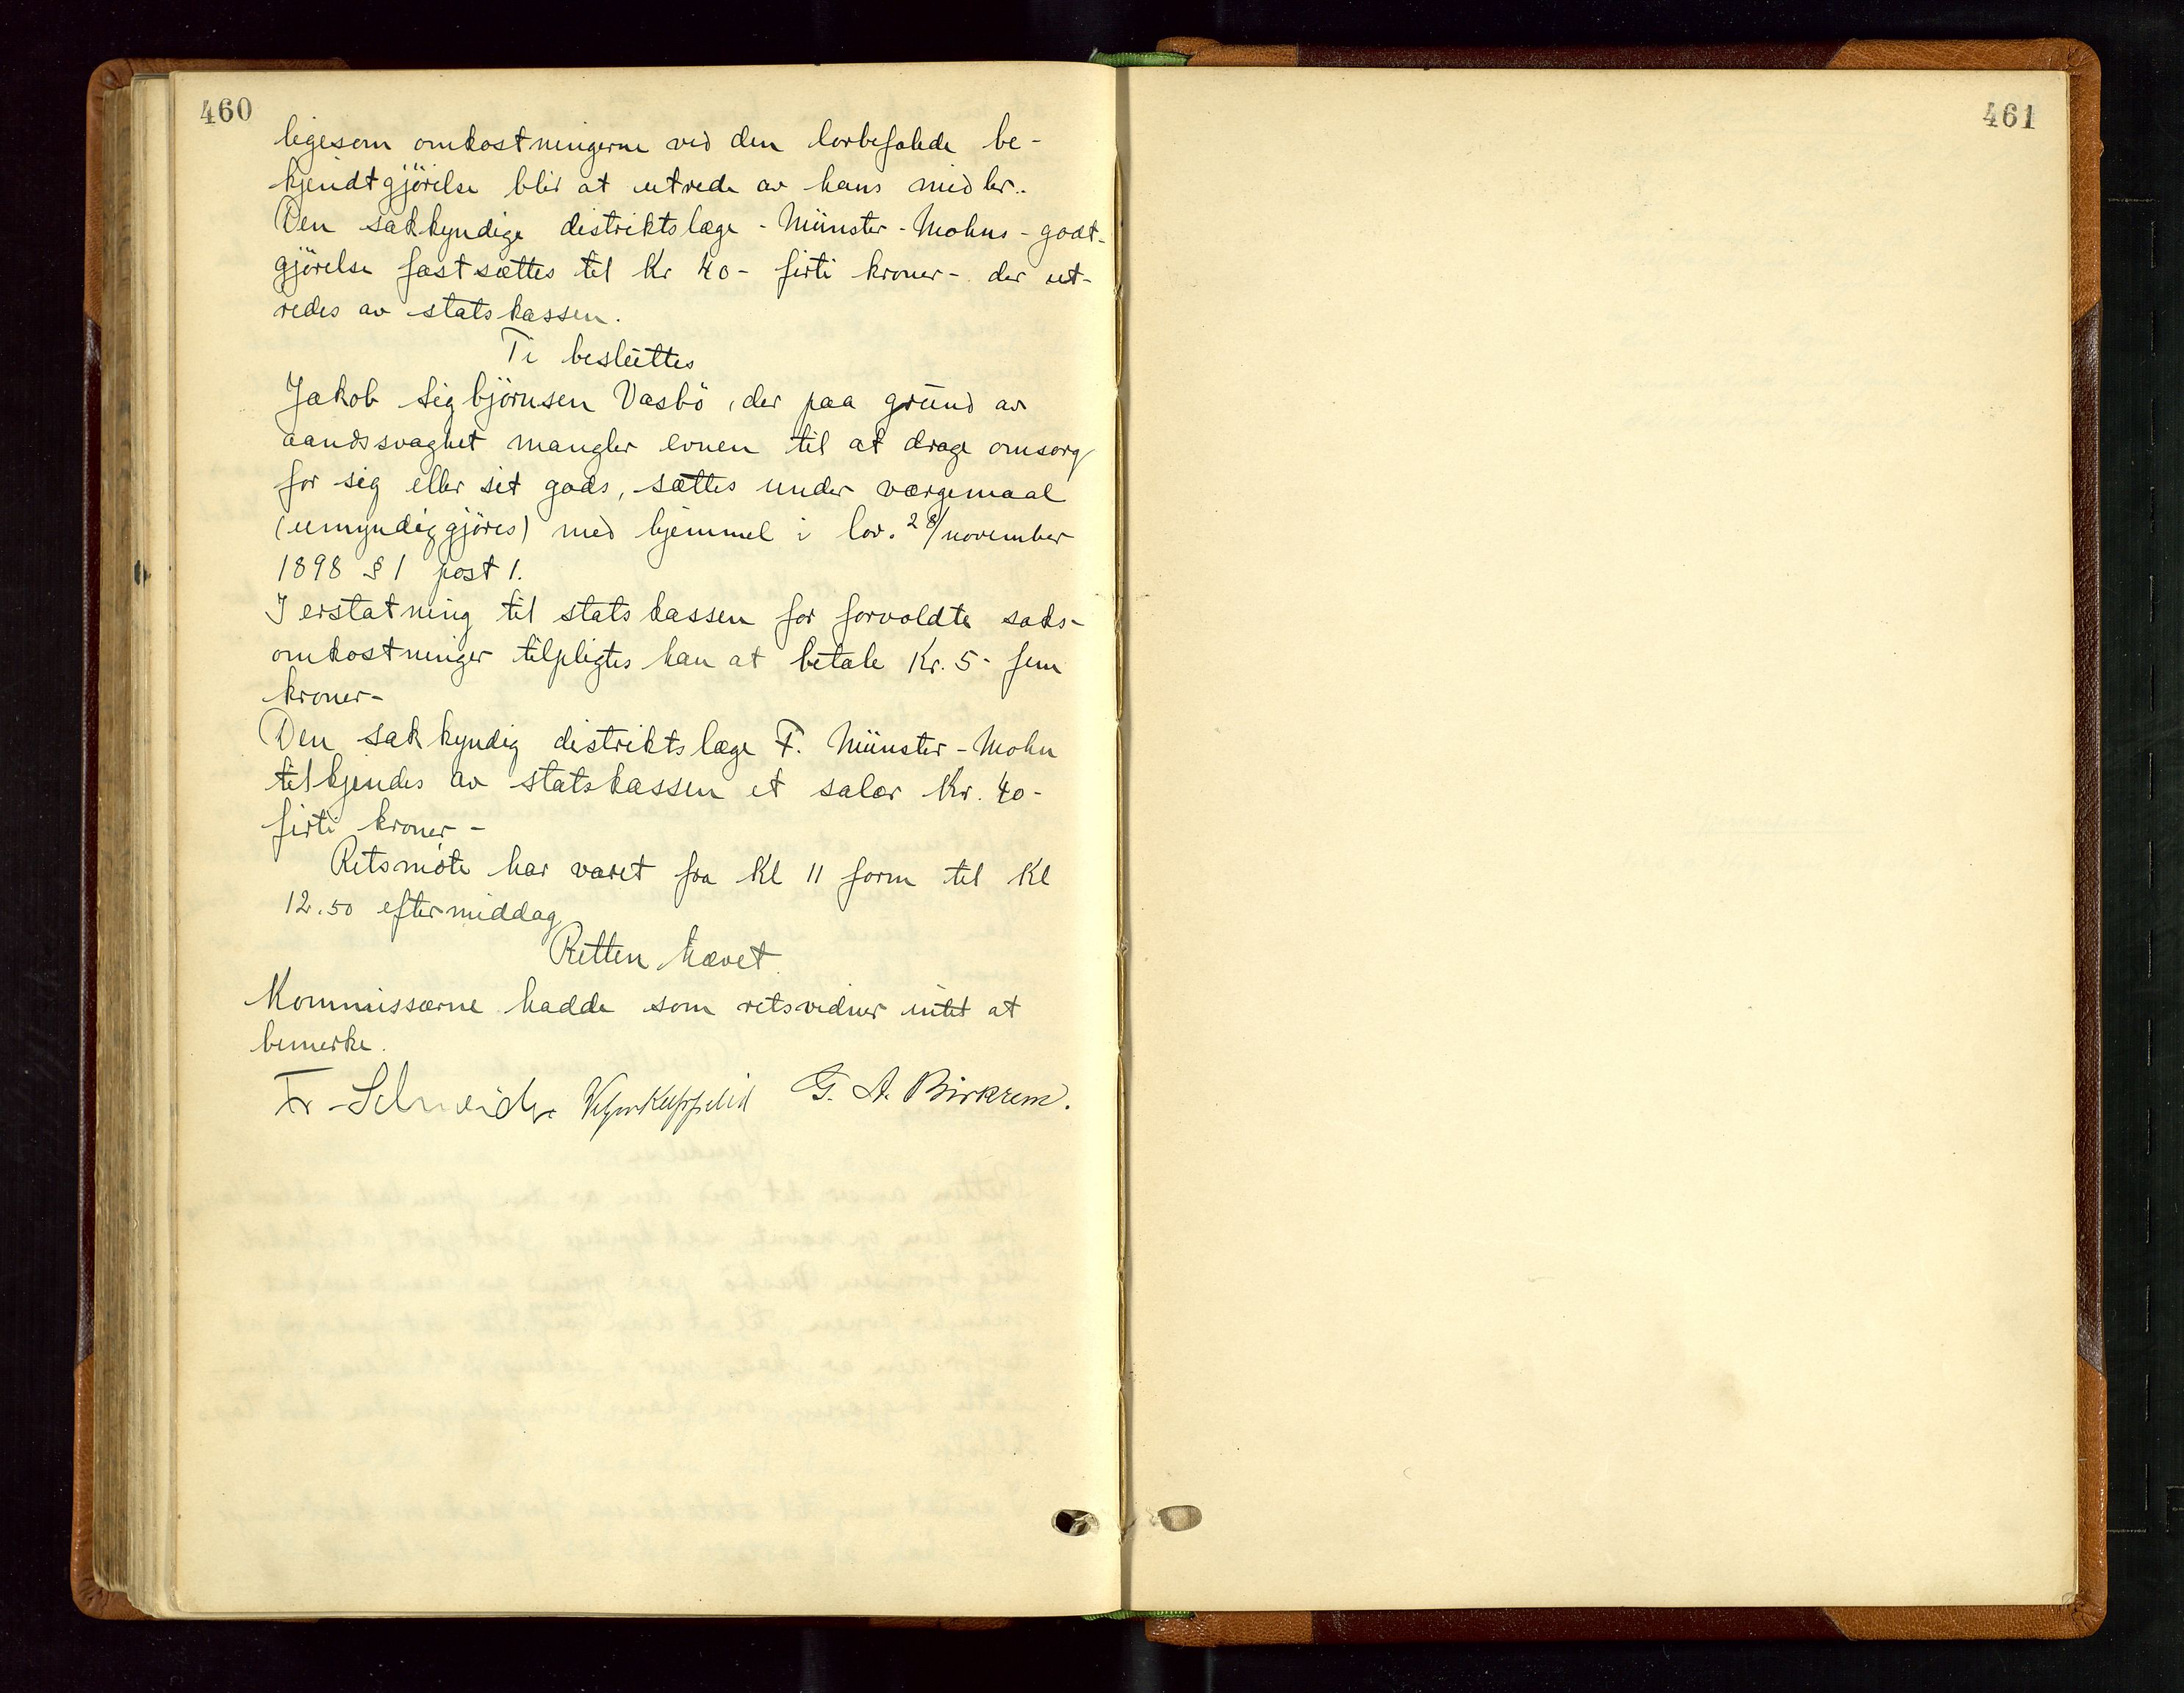 460
ligesom omkostningerne ved den lovbefalede be-
kjendtgjörelse blir at utrede av hans midler.
Den sakkyndige distriktslæge - Münster-Mohns - godt-
gjörelse fastsættes til Kr 40 - firti kroner - der ut-
redes av statskassen.
Ti besluttes
Jakob Sigbjörnsen Vasbö, der paa grund av
aandssvaghet mangler evnen til at drage omsorg
for sig eller sit gods, sættes under værgemaal
(umyndiggjöres) med hjemmel i lov. 28/november
1898 § 1 post 1.
I erstatning til statskassen for forvoldte saks-
omkostninger tilpligtes han at betale Kr. 5 - fem
kroner -
Den sakkyndig distriktslæge F. Münster-Mohn
tilkjendes av statskassen et salær Kr. 40 -
firti kroner -
Retsmöte har varet fra Kl 11 form til Kl
12.50 eftermiddag
Retten hævet.
Kommissærne hadde som retsvidner intet at
bemerke.
Fr. G. A. Birkrem.
461